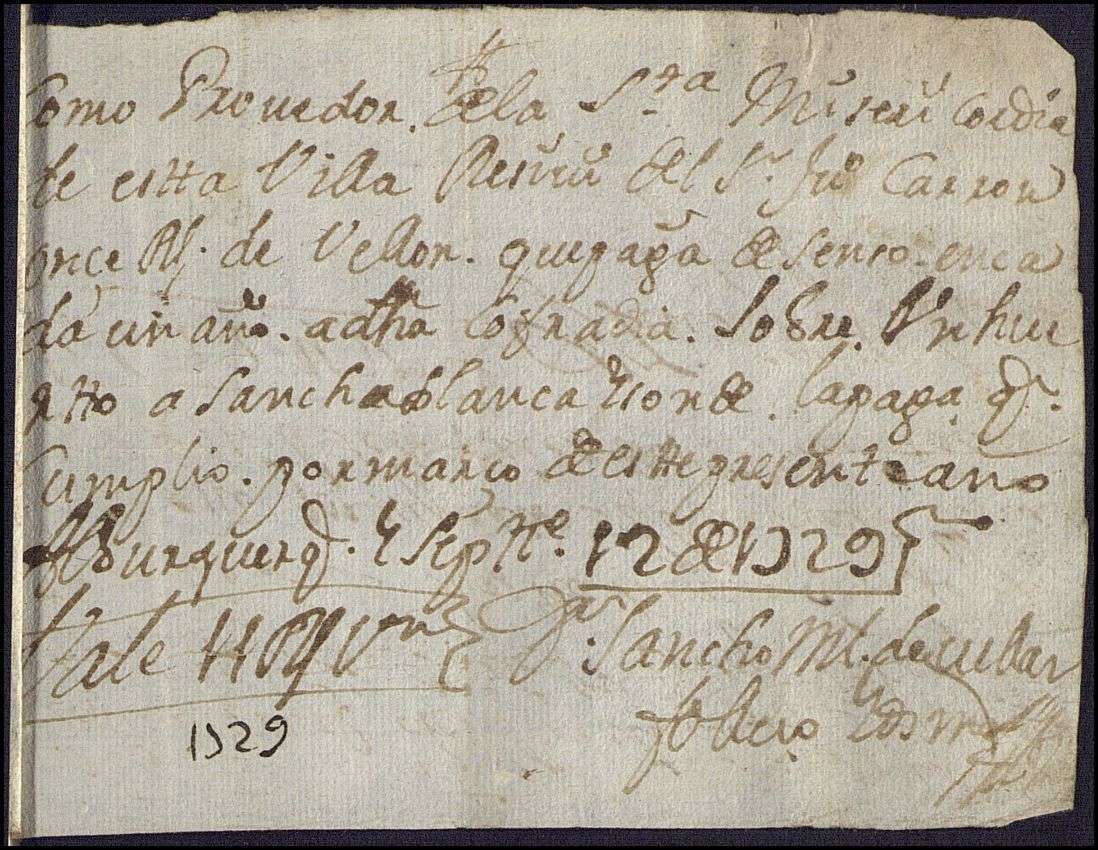 Como Prouedor. de la Sta Miseri Cordia
de estta Villa Resiui del Sr. Juo Carron
once Rs. de Vellon. que paga de senso. en ca
da un año. a dha Cofradia. Sobre. Un hue
rtto a Sancha blanca donde. la paga. q.
Cumplio. por março de estte presentte año
Alburquerq. y Sepre. 12 de 1729
Vale 11 RS Vn
Sancho Ml. de cuellar
1729